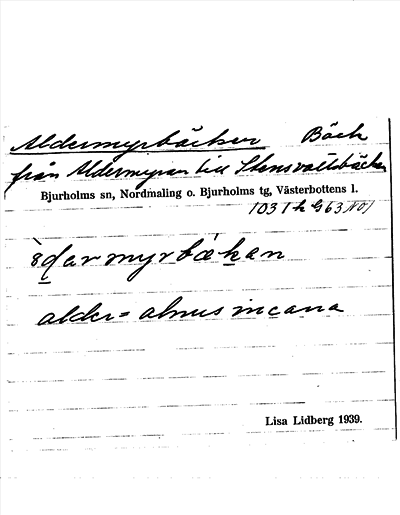 Aldermyrbäcken Bäck
från Aldermyran till Stensvattsbäcken
Bjurholms sn, Nordmaling o. Bjurholms tg, Västerbottens l.
alder = alnus incana
Lisa Lidberg 1939.